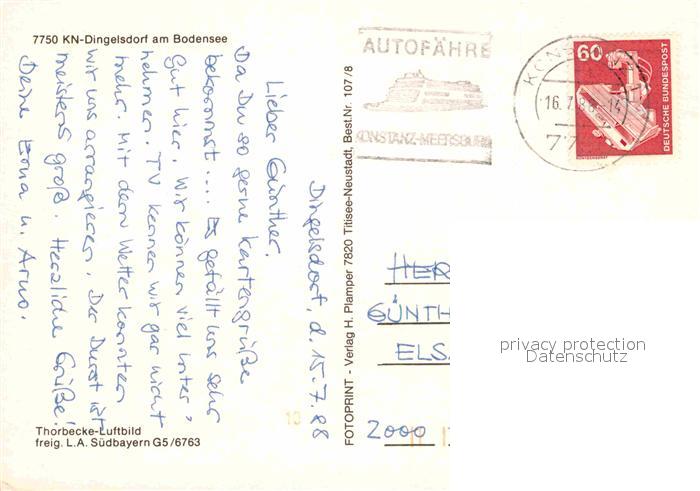 7750 KN-Dingelsdorf am Bodensee
Dingelsdorf, d. 15.7.88
Lieber Günther.
Da Du so gerne Kartengrüße
bekommst.... Es gefällt uns sehr
gut hier. Wir können viel unter=
nehmen. TV kennen wir gar nicht
mehr. Mit dem Wetter konnten
wir uns arrangieren. Der Durst ist
meistens groß. Herzliche Grüße!
Deine Erna u. Arno.
Thorbecke-Luftbild
freig. L.A. Südbayern G5/6763
FOTOPRINT - Verlag H. Plamper 7820 Titisee-Neustadt, Best.Nr. 107/8
AUTOFÄHRE
KONSTANZ-MEERSBURG
16.7.88
60
DEUTSCHE BUNDESPOST
HER
GÜNTH
ELS
2000
privacy protection
Datenschutz